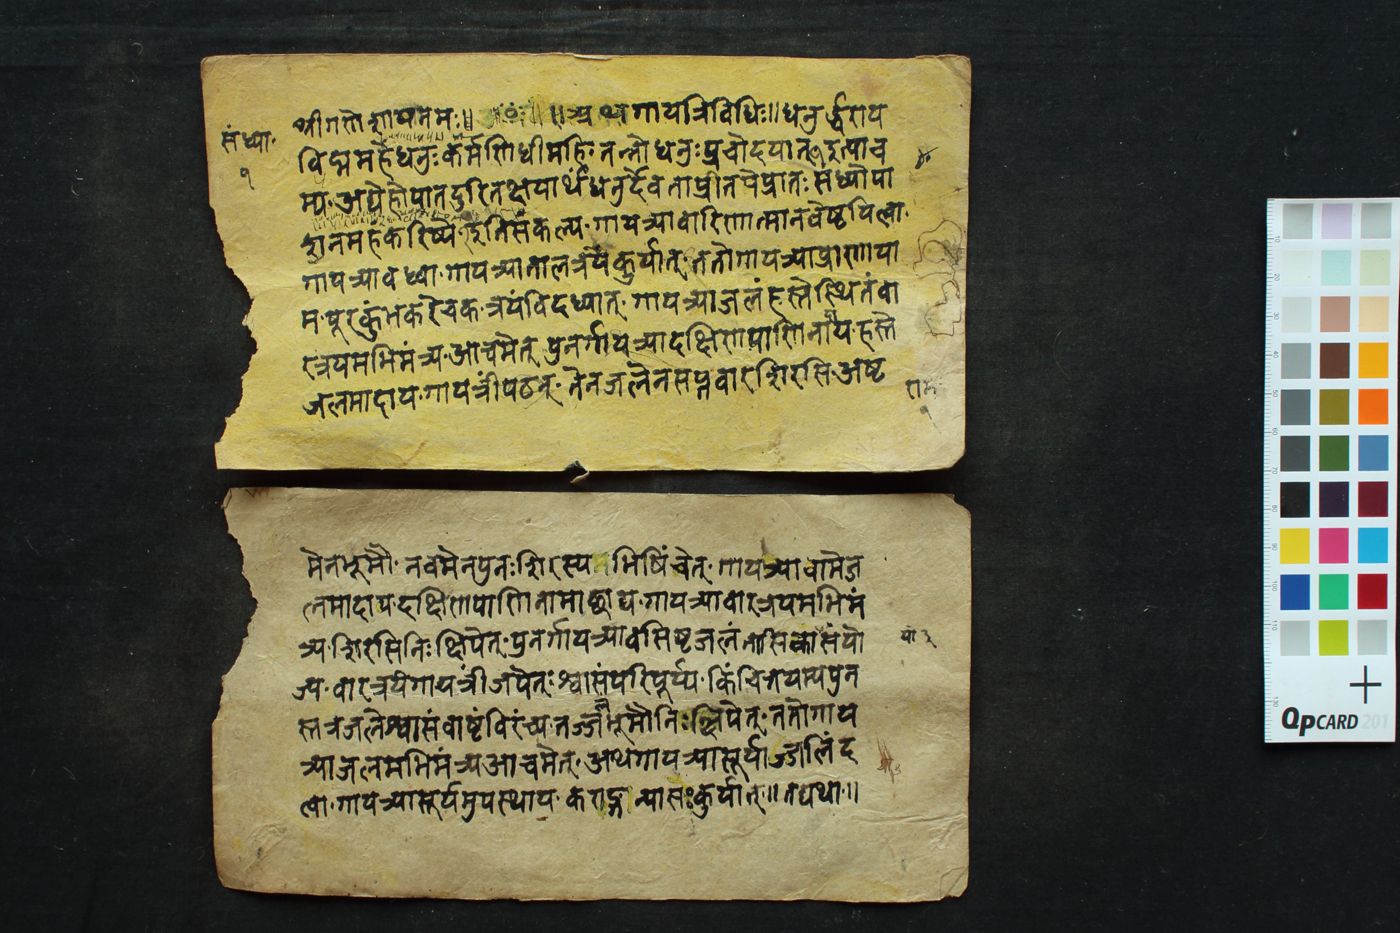 श्रीगणेशायनमः॥ ॥अथगायत्रिविधिः॥धनुर्द्धराय
संध्या॰
१
विद्महेधनुः कर्मणिधीमहि॰तन्नोधनुःप्रचोदयात् इत्याच
म्य॰अद्येहोपातदुरितक्षयार्थंधनुर्देवताप्रीतयेप्रातः संध्योपा
शनमहंकरिष्ये॰इतिसंकल्प्य॰गायत्र्यावारिणात्मानंवेष्टयित्वा॰
गायत्र्यावध्वा॰गायत्र्यातालत्रयंकुर्यात्॰ततोगायत्र्याप्राणाया
म॰पूरकुंभकरेचक॰त्रयंविदध्यात्॰गायत्र्याजलंहस्तेस्थितंवा
रत्रयमभिमंत्र्य॰आचमेत् पुनर्गायत्र्यादक्षिणपाणिनाय॰हस्ते
जलमादाय॰गायत्रींपठन्॰तेनजलेनसप्तवारंशिरसि॰अष्ट
राम॰
१
मेनभूमौ॰नवमेनपुनःशिरस्यभिषिंचेत्॰गायत्र्यावामेज
लमादाय॰दक्षिणपाणिनामाछाद्य॰गायत्र्यावारत्रयमभिमं
त्र्य॰शिरसिनिःक्षिपेत्॰पुनर्गायत्र्यावसिष्टजलंनासिकासंयो
ज्य॰वारत्रयंगायत्रींजपेत्॰श्वासंपरिपूर्य्य॰किंचित्
स्तत्रजलेश्वासं ॰तज्जलंभूमौनिःक्षिपेत्॰ततोगाय
त्र्याजलमभिमंत्र्यआचमेत्॰अथगायत्र्यासूर्याञ्जलिंद
त्वा॰गायत्र्यासूर्यमुपस्थाय॰कराङ्गन्यासःकुर्यात्॥तद्यथा॰॥